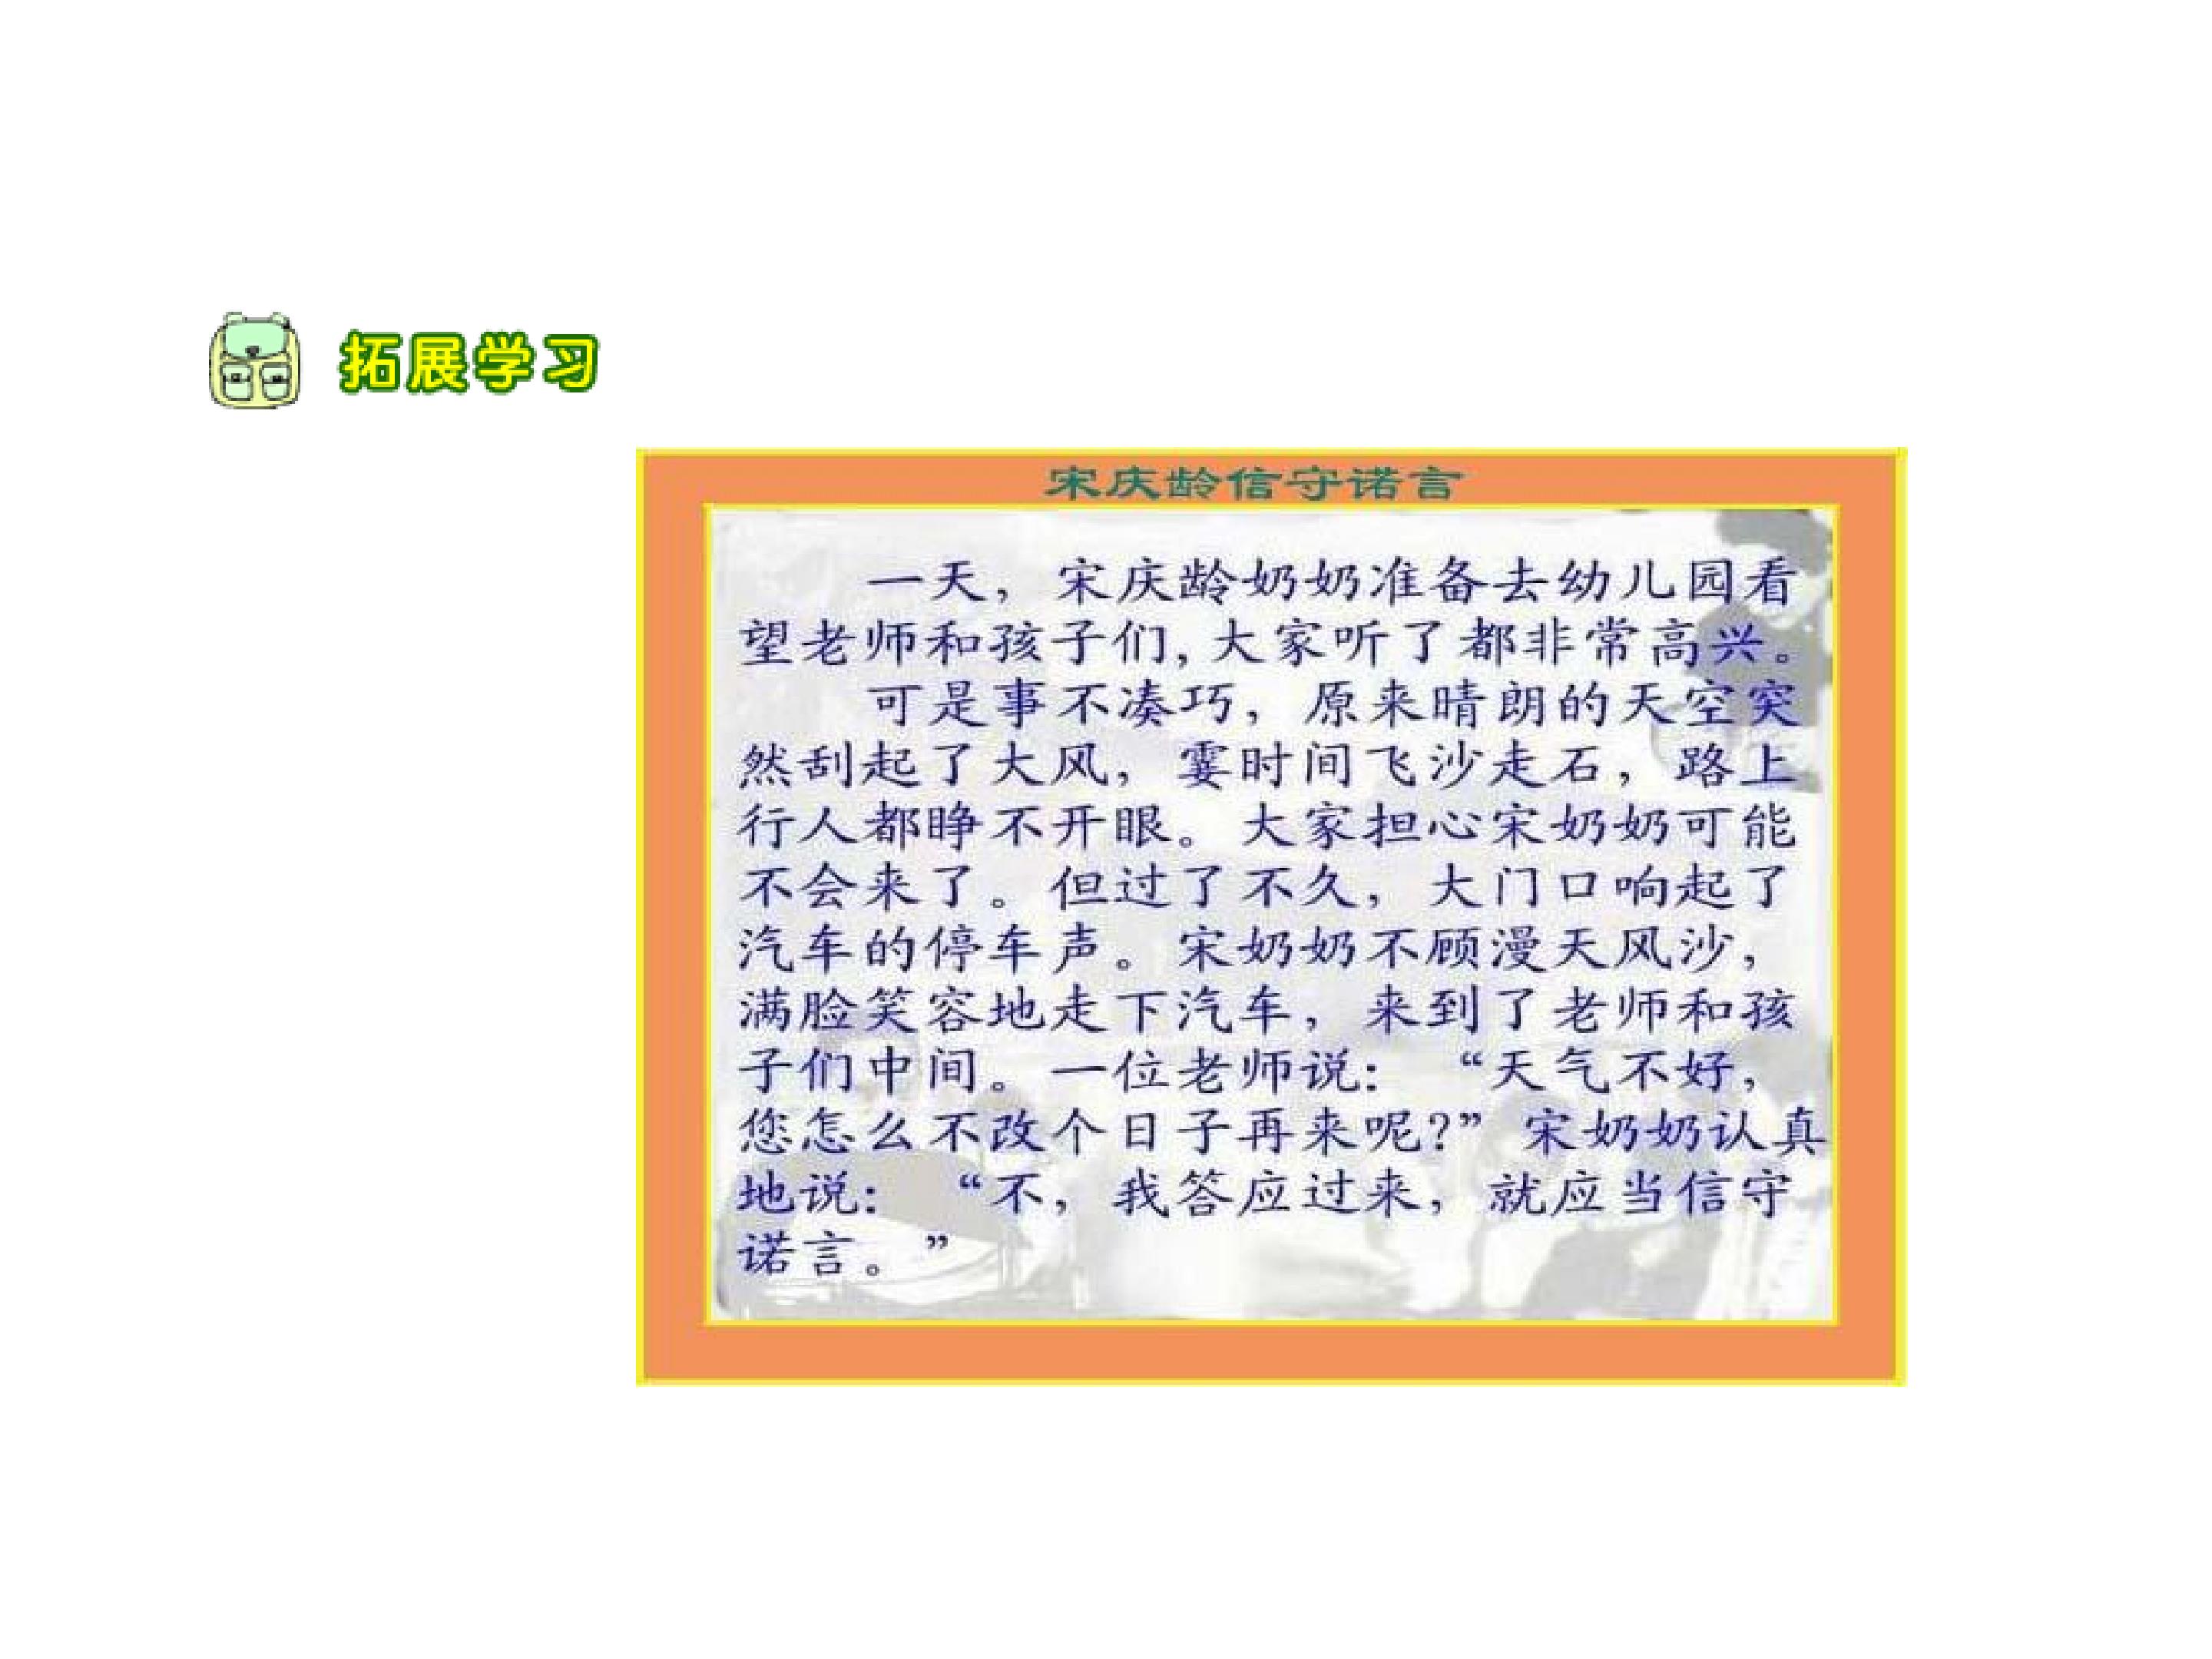 拓展学习
宋庆龄信守诺言
一天，宋庆龄奶奶准备去幼儿园看
望老师和孩子们，大家听了都非常高兴。
可是事不凑巧，原来晴朗的天空突
然刮起了大风，霎时间飞沙走石，路上
行人都睁不开眼。大家担心宋奶奶可能
不会来了。但过了不久，大门口响起了
汽车的停车声。宋奶奶不顾漫天风沙，
满脸笑容地走下汽车，来到了老师和孩
子们中间。一位老师说：“天气不好，
您怎么不改个日子再来呢？”宋奶奶认真
地说：“不，我答应过来，就应当信守
诺言。”